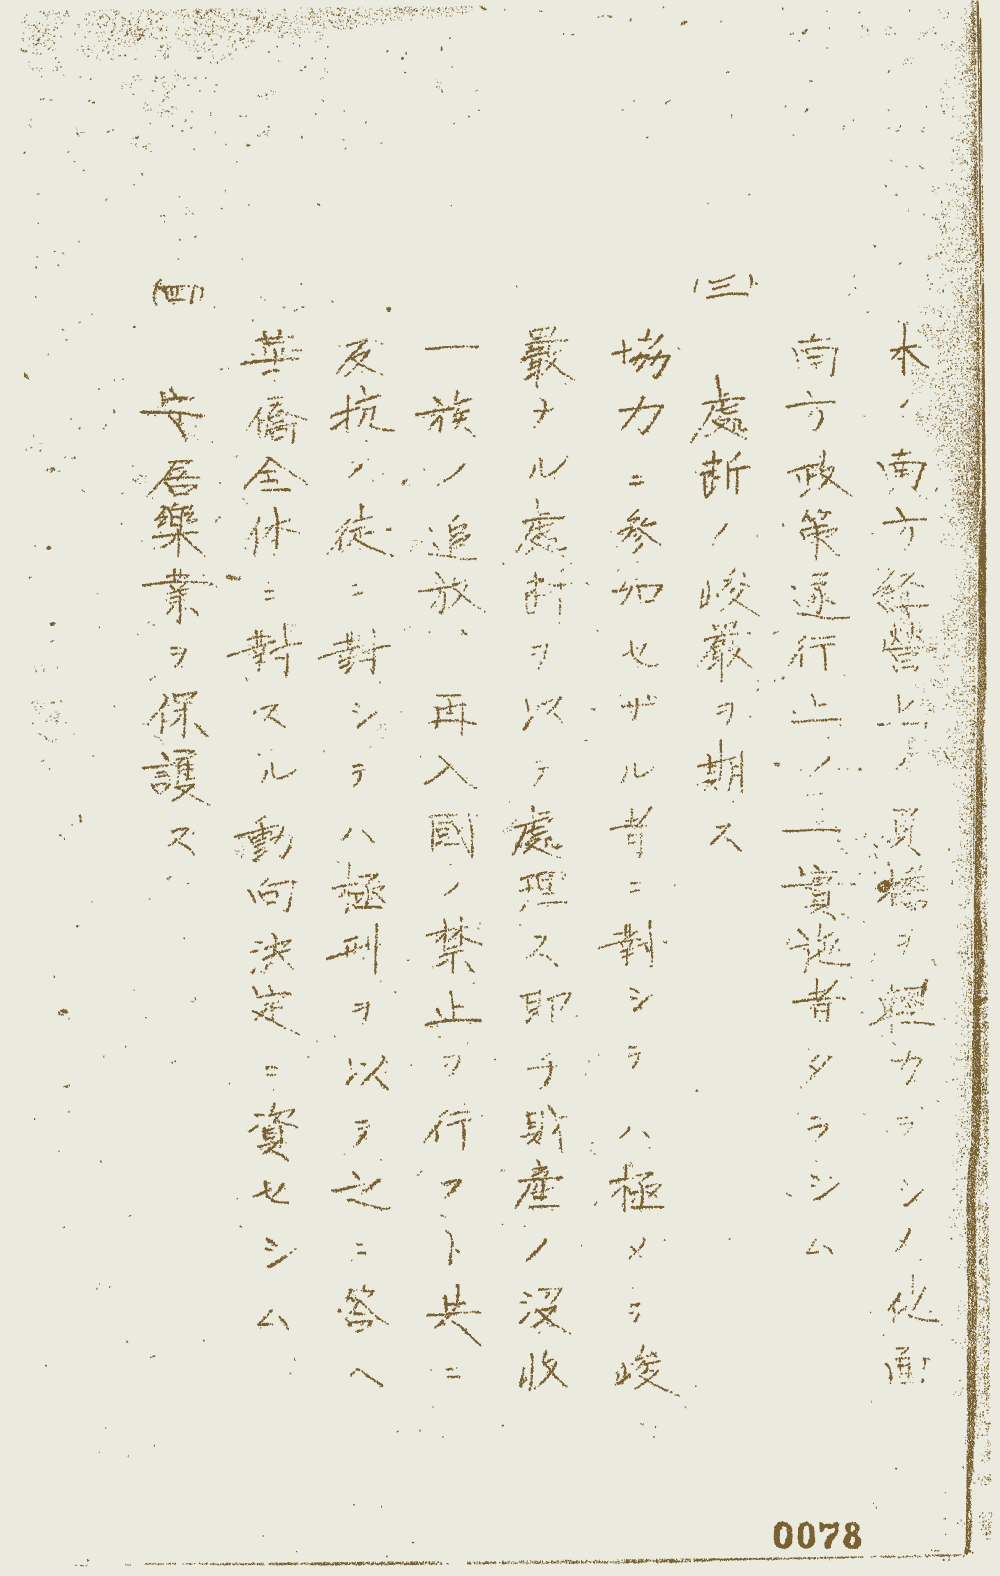 本ノ南方経營上ノ負擔ヲ輕カラシメ他面
南方政策遂行上ノ一實施者タラシム
(三)
處断ノ峻嚴ヲ期ス
協力ニ参加セザル者ニ對シテハ極メテ峻
嚴ナル處断ヲ以テ處理ス即チ財產ノ沒收
一族ノ追放 再入國ノ禁止ヲ行フト共ニ
反抗ノ徒ニ對シテハ極刑ヲ以テ之ニ答ヘ
華僑全体ニ對スル動向決定ニ資セシム
(四)
安居樂業ヲ保護ス
0078